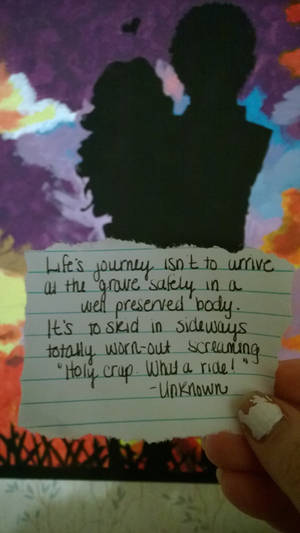 Life's journey isn't to arrive
at the grave safely in a
well preserved body.
It's to skid in sideways
totally worn-out screaming
"Holy crap What a ride!"
-Unknown